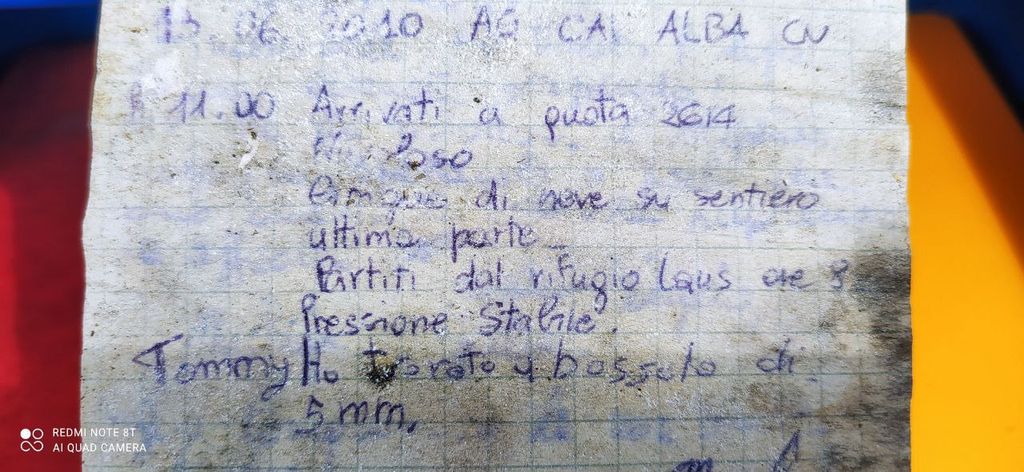 13.06.2010 AG CAI ALBA CN
h 11.00 Arrivati a quota 2614
Nuvoloso
lingue di neve su sentiero
ultima parte.
Partiti dal rifugio Laus ore 8
Pressione Stabile.
Tommy Ho trovato 1 bossolo di
5 mm.
REDMI NOTE 8T
AI QUAD CAMERA